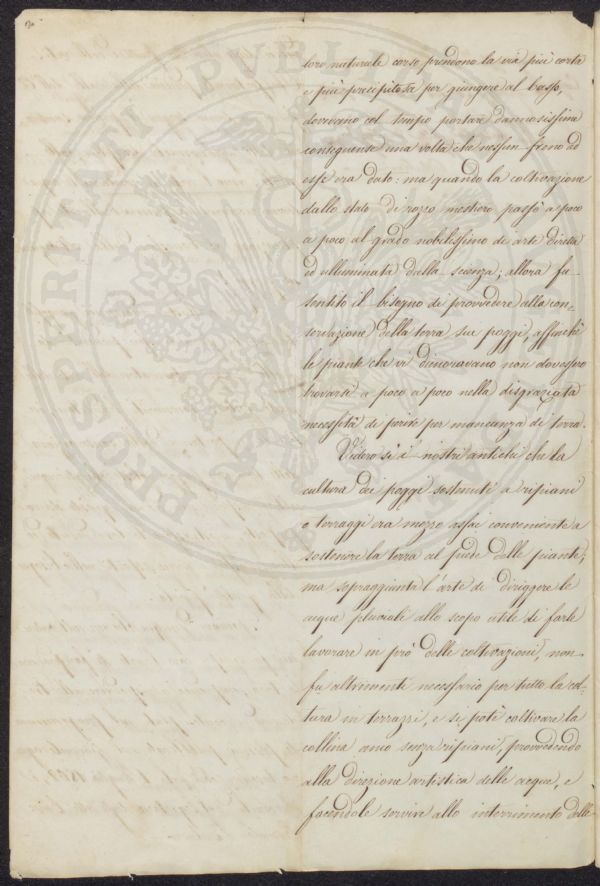 loro naturale corso prendono la via più corta
e più precipitosa per giungere al basso,
dovevano col tempo portare dannosissime
conseguenze una volta che nessun freno ad
esse era dato: ma quando la coltivazione
dallo stato di rozzo mestiero passò a poco
a poco al grado nobilissimo di arte diretta
ed illuminata dalla scienza; allora fu
sentito il bisogno di provvedere alla con-
servazione della terra su i poggi, affinchè
le piante che vi dimoravano non dovessero
trovarsi a poco a poco nella disgraziata
necessità di perire per mancanza di terra.
Videro sì i nostri antichi che la
cultura dei poggi sostenuti a ripiani
o terraggi era mezzo assai conveniente a
sostenere la terra al piede delle piante;
ma sopraggiunta l'arte di diriggere le
acque pluviali allo scopo utile di farle
lavorare in prò delle coltivazioni, non
fu altrimenti necessario per tutto la col-
tura in terrazzi, e si potè coltivare la
collina anco senza ripiani, provvedendo
alla direzione artistica delle acque, e
facendole servire allo interrimento delle
PROSPERITATI PVBLICAE